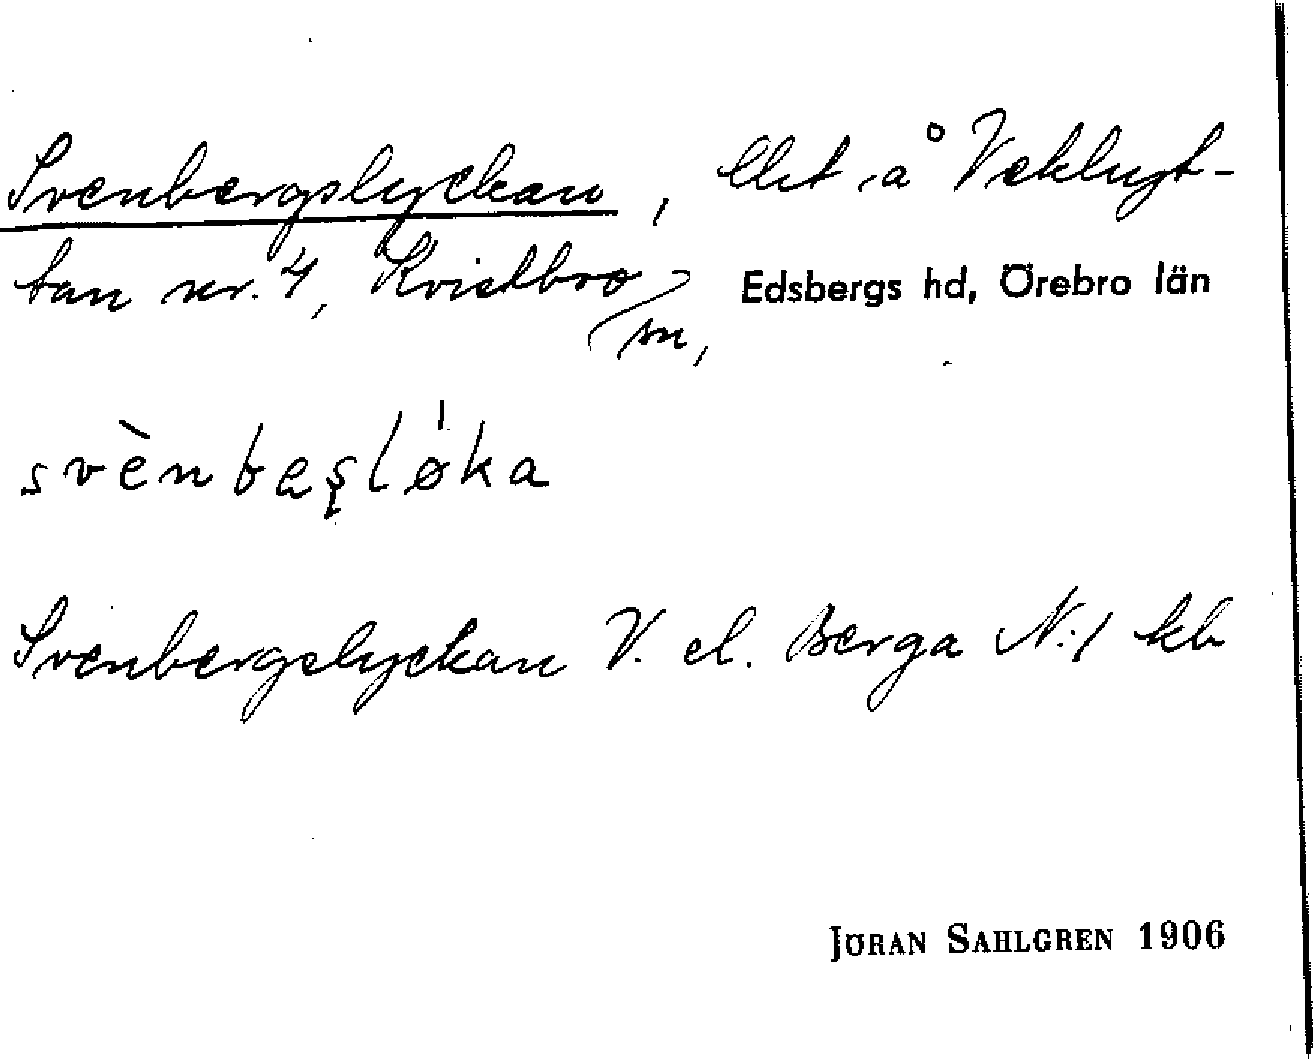 Svenbergslyckan, lht å Veklagt-
tan nr. 4, Kvistbro sn, Edsbergs hd, Örebro län
svènbaşlø̍ka
Svenbergslyckan V. el. Berga N:1 kb
JÖRAN SAHLGREN 1906